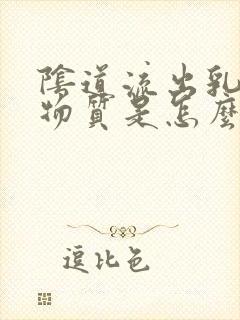 陰道流出乳
物质是怎麼
逗比色